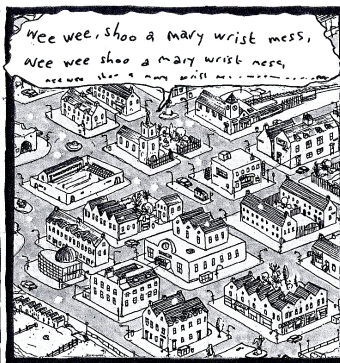 wee wee, shoo a mary wrist mess,
wee wee shoo a mary wrist mess,
wee wee shoo a mary wrist